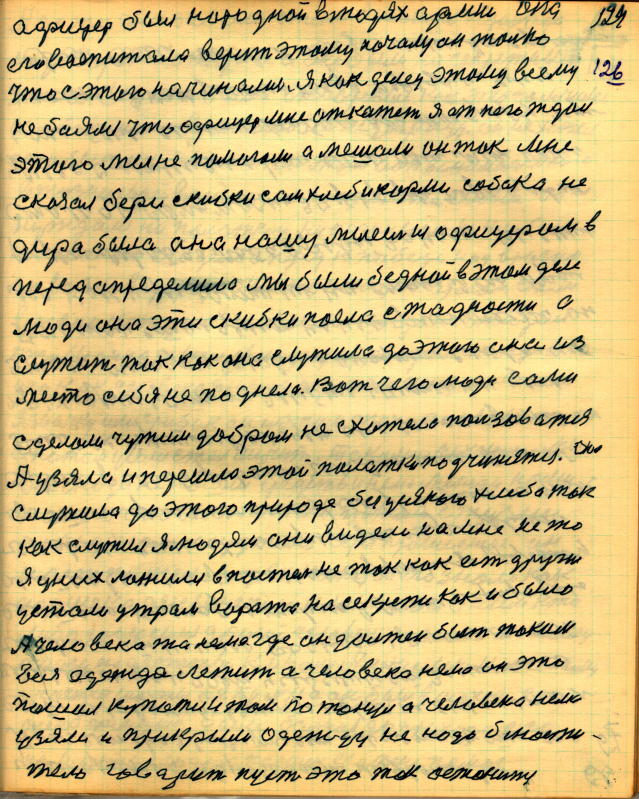 124
афицер был народной в людях армии она
его воспитала верит этому почому он только
что с этого начинался. Я как делец этому всему 126
не баялся что афицер мне откажет я от него ждал
этого мы не помогали а мешали он так мне
сказал бери скибки сам хлеби корми собака не
дура была а на нашу мысль и офицером в
перед определила мы были бедной в этом деле
люди она эти скибки поела с жадности а
служит так как она служила до этого она из
место себя не подняла. Вот чего люди сами
сделали чужим добром не схотела ползоватся
А узяла и перешла этой палатки подчинятся. Она
служила до этого природе без усякого хлеба так
как служил я людям они видели на мне не то
я у них ложился в постел не так как ест други
устали утрам варата на секрети как и было
А человека та нема где он должен быт таком
Вся одежда лежит а человека нема он это
пошол купатся и там потонул а человека нема
узяли и прикрыли одежду не нада б
тело говарит пуст это так